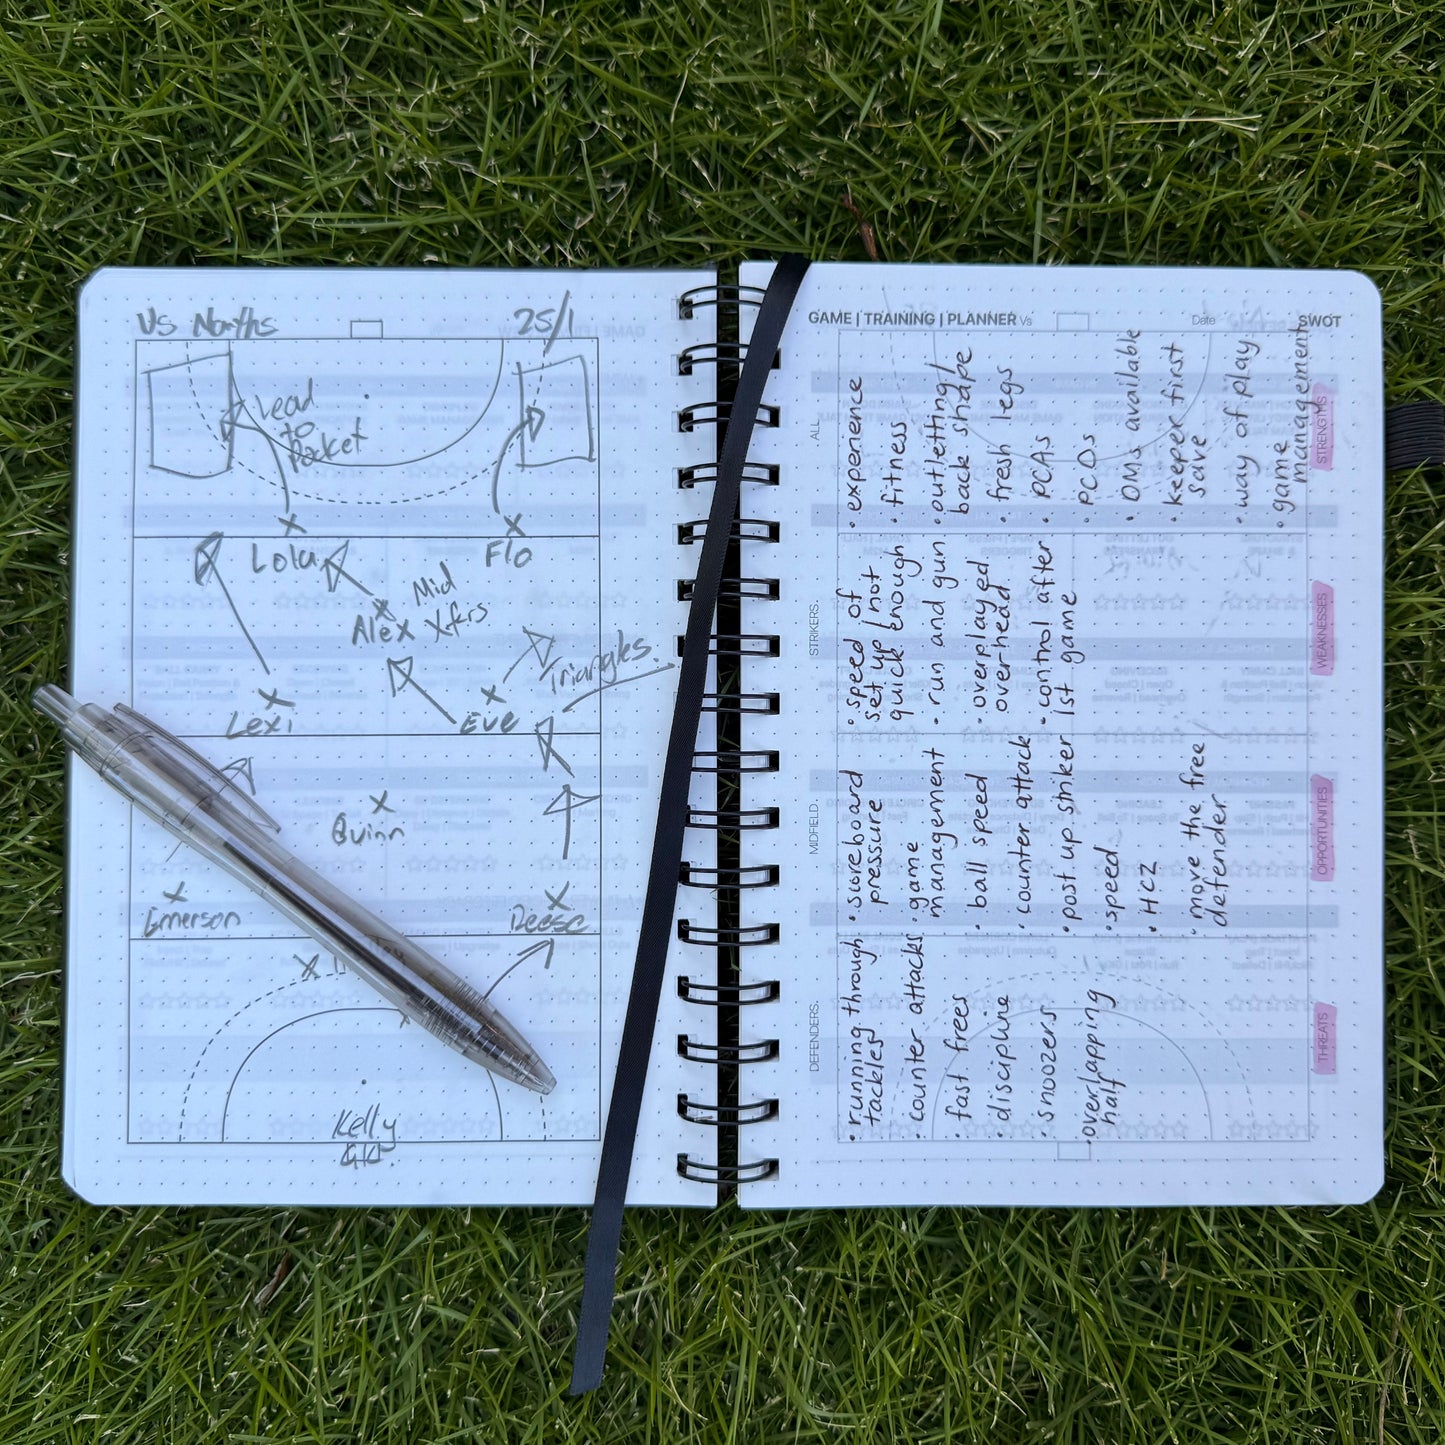 Vs Norths
25/1
Lead
to
Pocket
Lola
Flo
Mid
Alex Xfrs
Triangles.
Lexi
Eve
Quinn
Emerson
Reese
Kelly
GK.
GAME | TRAINING | PLANNER Vs
Date
SWOT
ALL.
STRIKERS.
MIDFIELD.
DEFENDERS.
STRENGTHS
• experience
• fitness
• outletting/
back shape
• fresh legs
• PCAs
• PCDs
• DMs available
• keeper first
save
• way of play
• game
management
WEAKNESSES
• speed of
set up not
quick enough
• run and gun
• overplayed
overhead
• control after
1st game
OPPORTUNITIES
• scoreboard
pressure
• game
management
• ball speed
• counter attack
• post up striker
• speed
• HCZ
• move the free
defender
THREATS
• running through
tackles
• counter attacks
• fast frees
• discipline
• snoozers
• overlapping
half